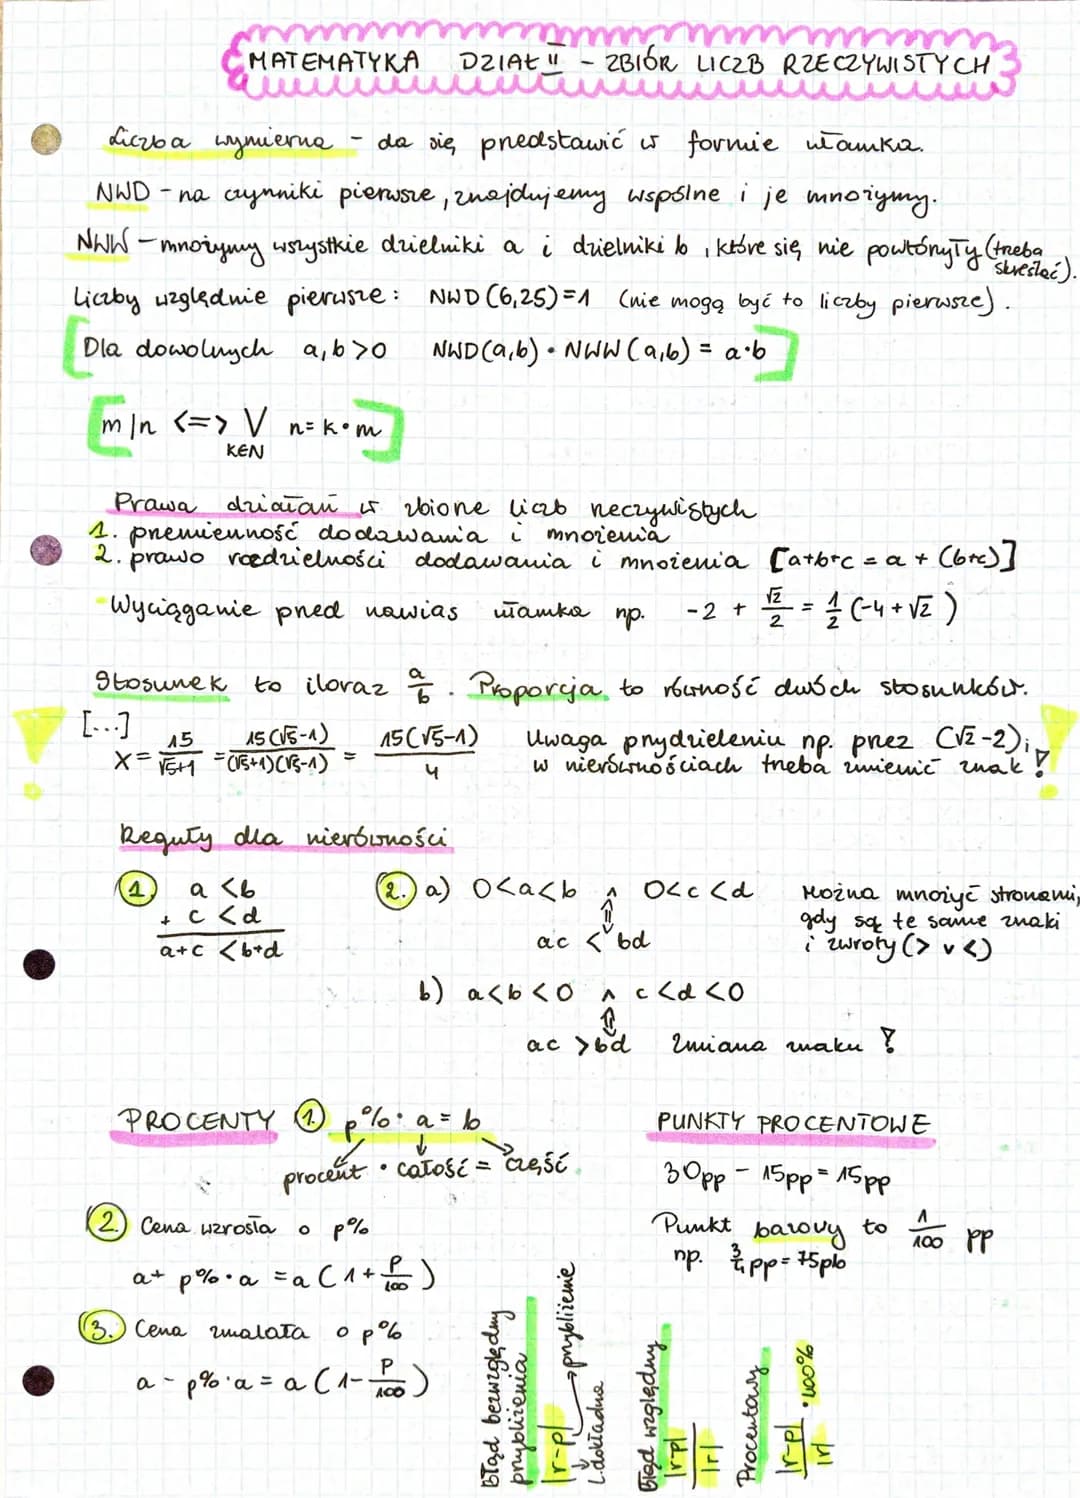 MATEMATYKA DZIAŁ II - ZBIÓR LICZB RZECZYWISTYCH
Liczba wymierna - da się przedstawić w formie ułamka.
NWD - na czynniki pierwsze, znajdujemy wspólne i je mnożymy.
NWW - mnożymy wszystkie dzielniki a i dzielniki b, które się nie powtórzyły (trzeba skreślać).
Liczby względnie pierwsze: NWD (6,25)=1 (nie mogą być to liczby pierwsze).
[Dla dowolnych a,b>0 NWD(a,b) • NWW(a,b) = a•b]
[m|n <=> V n=k•m]
K∈N
Prawa działań w zbiorze liczb rzeczywistych
1. przemienność dodawania i mnożenia
2. prawo rozdzielności dodawania i mnożenia [a+b+c = a + (b+c)]
- Wyciąganie przed nawias ułamka np. -2 + √2/2 = 1/2 (-4+√2)
Stosunek to iloraz a/b. Proporcja to równość dwóch stosunków.
[...]
x = 15/√5+1 = 15(√5-1)/(√5+1)(√5-1) = 15(√5-1)/4
Uwaga przy dzieleniu np. przez (√2-2);
w nierównościach trzeba zmienić znak!
Reguły dla nierówności
1. a <b
+ c <d
a+c <b+d
2. a) 0<a<b ∧ 0<c<d
⇕
ac < bd
Można mnożyć stronami,
gdy są te same znaki
i zwroty (> v <)
b) a<b<0 ∧ c<d<0
⇕
ac >bd Zmiana znaku !
PROCENTY 1. p% • a = b
procent • całość = część.
2. Cena wzrosła o p%
a+ p%•a = a (1+ p/100)
3. Cena zmalała o p%
a - p%•a = a (1- p/100)
PUNKTY PROCENTOWE
30pp - 15pp = 15pp
Punkt bazowy to 1/100 pp
np. 3/4 pp = 75pb
Błąd bezwzględny
przybliżenia
|r-p| → przybliżenie
↓
l.dokładna
Błąd względny
|r-p|/|r|
Procentowy
|r-p|/|r| •100%